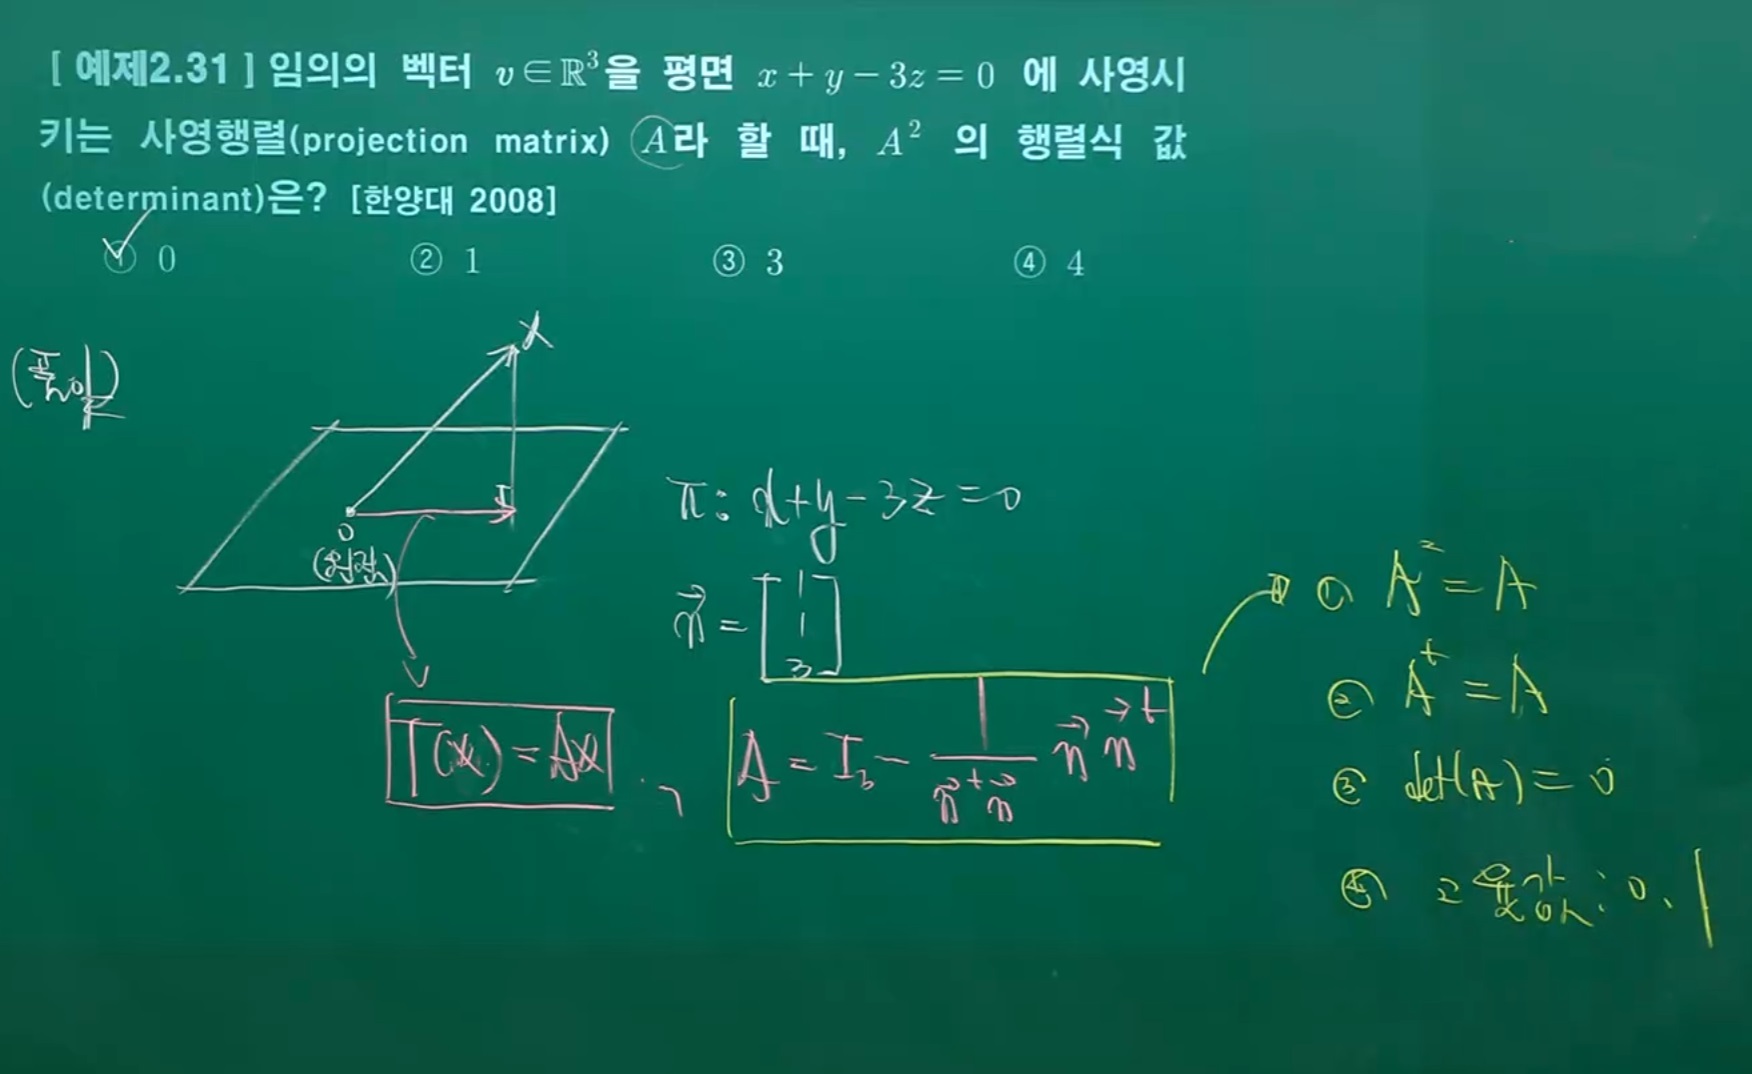 [ 예제2.31 ] 임의의 벡터 v∈ℝ³을 평면 x + y − 3z = 0 에 사영시
키는 사영행렬(projection matrix) A라 할 때, A² 의 행렬식 값
(determinant)은? [한양대 2008]
① 0 ② 1 ③ 3 ④ 4
(풀이)
X
O
(원점)
T(x) = Ax
π: x+y−3z=0
n⃗ = [1 1 3]
A = I₃ − 1/(n⃗ᵗn⃗) n⃗ n⃗ᵗ
① A² = A
② Aᵗ = A
③ det(A) = 0
④ 고윳값: 0, 1